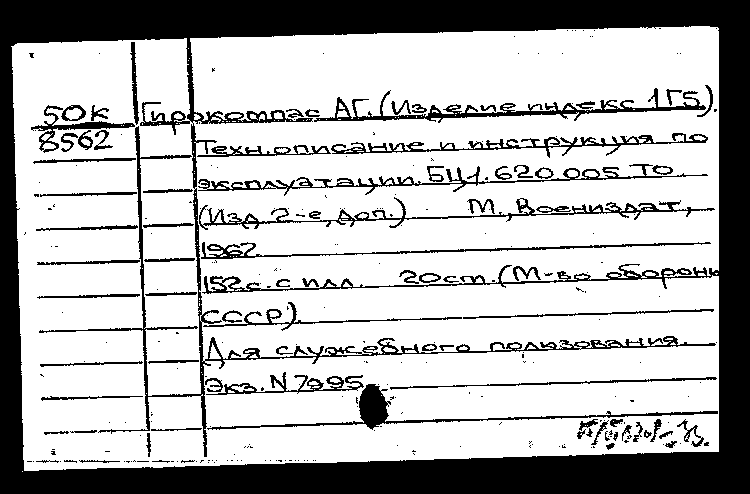 50к Гирокомпас АГ. (Изделие индекс 1Г5).
8562 Техн.описание и инструкция по
эксплуатации. БЦ1.620.005 ТО
(Изд. 2-е, доп.) М., Воениздат,
1962.
152 с. с илл. 20см. (М-во обороны
СССР).
Для служебного пользования.
Экз. N 7995